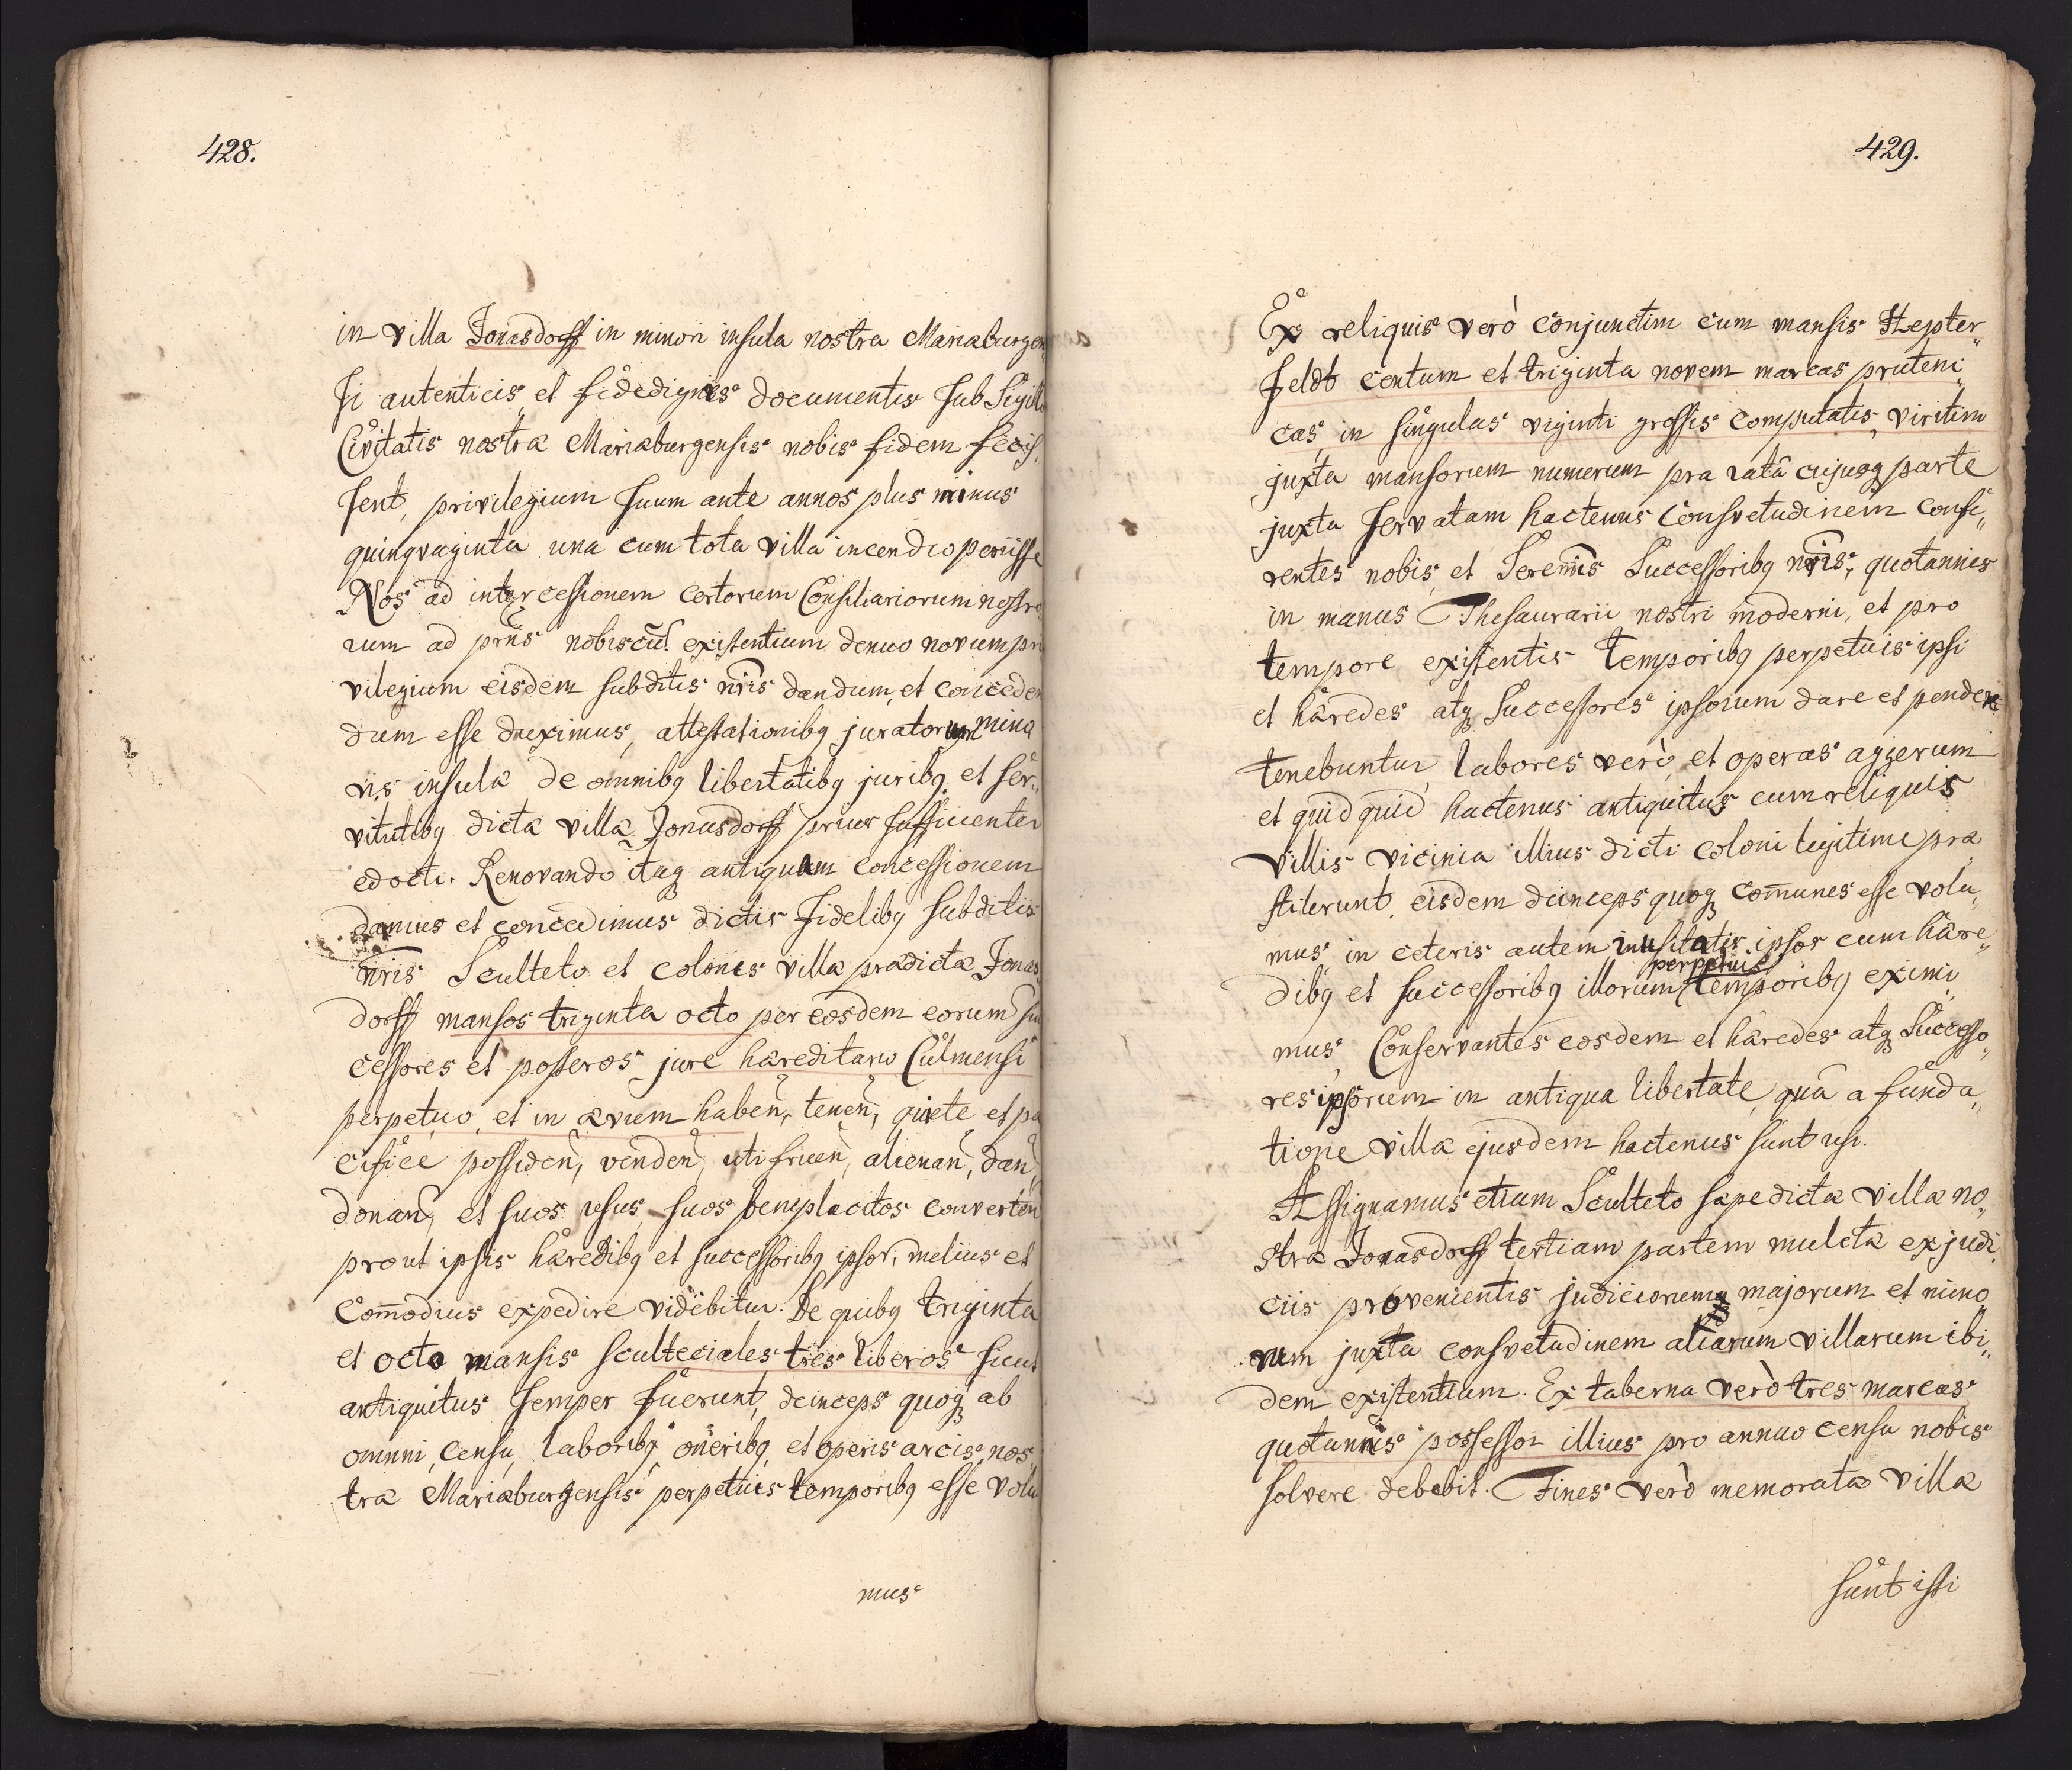 428.
in villa Jonasdorff in minori insula nostra Mariaeburgen
si autenticis et fidedignis documentis sub Sigillo
Civitatis nostrae Mariaeburgensis nobis fidem fecis,
sent, privilegium suum ante annos plus minus
quinqvaginta una cum tota villa incendio periisse
Nos ad intercessionem certorum Consiliariorum nostro
rum ad prñs nobiscũ existentium denuo novum pri
vilegium eisdem subditis nr̃is dandum, et conceden
dum esse duximus, attestationibq juratorum mino
ris insulae de omnibq libertatibq juribq et ser„
vitutibq dictae villae Jonasdorff prius sufficienter
edocti. Renovando itaq antiquam concessionem
damus et concedimus dictis fidelibq subditis
nr̃is Sculteto et colonis villae praedictae Jonas
dorff mansos triginta octo per eosdem eorum suc
cessores et posteros jure haereditario Culmensi
perpetuo et in aevum habeñ, teneñ, quiete et pa
cifice possideñ, vendeñ, uti frueñ, alienañ, dañ,
donañ, et suos usus suos beneplacitos converteñ
prout ipsis haeredibq et successoribq ipsor, melius et
com̃odius expedire videbitur. De quibq triginta
et octo mansis scultetiales tres liberos sicut
antiquitus semper fuerunt, deinceps quoq ab
omni, censu, laboribq oneribq, et operis arcis nos
trae Mariaeburgensis perpetuis temporibq esse volu
mus
429.
Ex reliquis verò conjunctim cum mansis Hepter„
feldt centum et triginta novem marcas pruteni„
cas, in singulas viginti grossis computatis, viritim
juxta mansorum numerum pra ratâ cujusq parte
juxta servatam hactenus consvetudinem confe„
rentes nobis, et Serem̃is Successoribq nr̃is, quotannis
in manus Thesaurarii nostri moderni, et pro
tempore existentis temporibq perpetuis ipsi
et haeredes atq Successores ipsorum dare et pendere
tenebuntur labores verò, et operas aggerum
et quidquid hactenus antiquitus cum reliquis
villis vicinia illius dicti coloni legitime prae
stiterunt, eisdem deinceps quoq com̃unes esse volu„
mus, in ceteris autem inusitatis ipsos cum haere„
perpetuis
dibq et successoribq illorum temporibq eximi„
mus, Conservantes eosdem et haeredes atq Successo„
res ipsorum in antiqua libertate, quâ a funda„
tione villae ejusdem hactenus sunt usi.
Assignamus etiam Sculteto saepe dictae villae no„
strae Jonasdorff tertiam partem mulctae ex judi„
ciis provenientis judiciorum majorum et mino
rum juxta consvetudinem aliarum villarum ibi„
dem existentium. Ex taberna verò tres marcas
quotannis possessor illius pro annuo censu nobis
solvere debebit. Fines verò memoratae villae
sunt isti